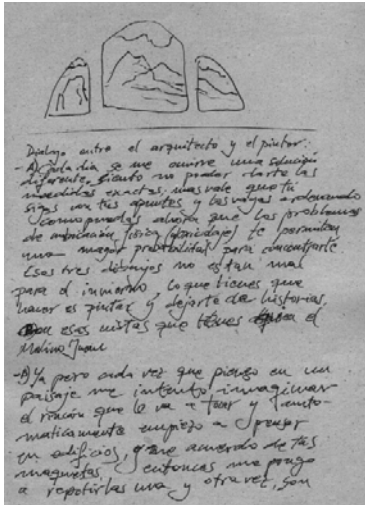 Dialogo entre el arquitecto y el pintor:
-A) Cada dia se me ocurre una solución
diferente. Siento no poder darte las
medidas exactas; mas vale que tú
sigas con tus apuntes y los vayas ordenando
como puedas ahora que los problemas
de ubicación física te permiten
una mayor para concentrarte
Esos tres dibujos no estan mal
para el invierno, lo que tienes que
hacer es pintar y dejarte de historias,
con esas vistas que tienes el
Molino, Juan
-P) Ya pero cada vez que pienso en un
paisaje me intento imaginar
el rincón que le va a tocar y
maticamente empiezo a pensar
en edificios, y me acuerdo de tus
maquetas entonces me pongo
a repetirlas una y otra vez, son